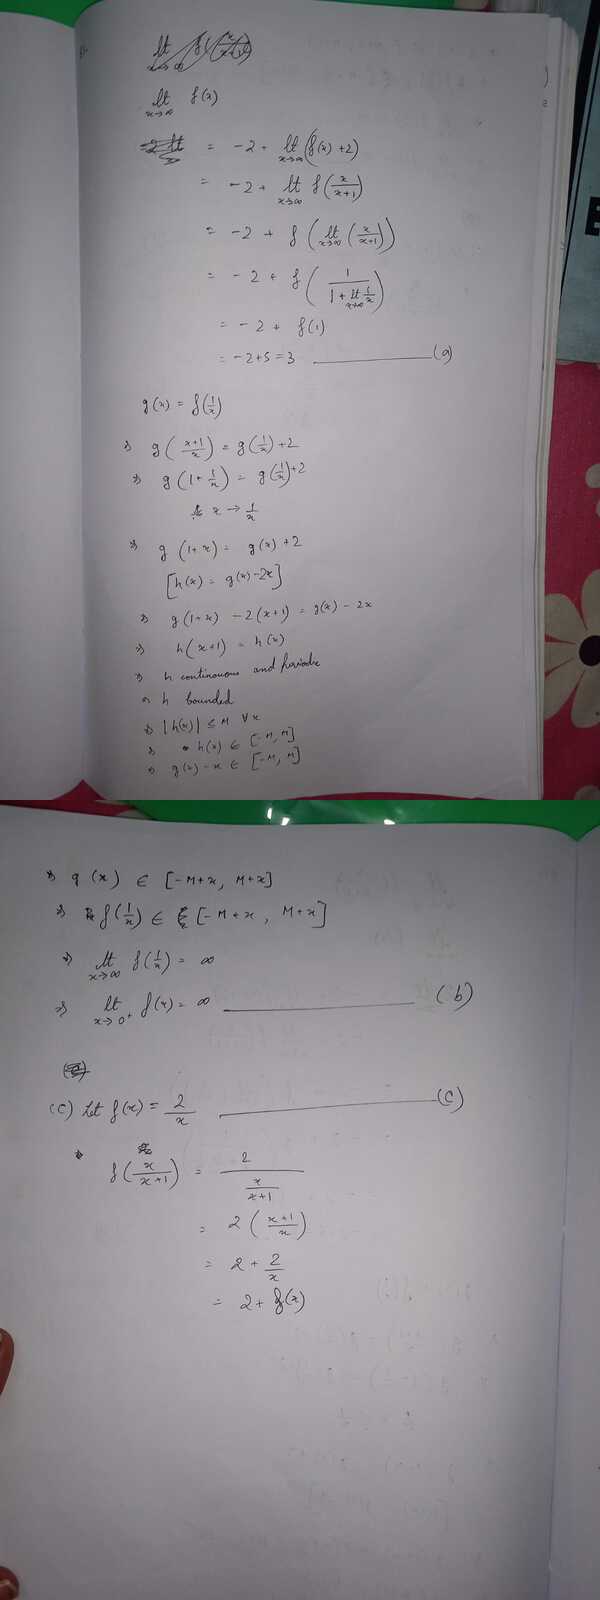 lt x→∞ f(x)
= -2 + lt x→∞ (f(x) + 2)
= -2 + lt x→∞ f(x/(x+1))
= -2 + f(lt x→∞ (x/(x+1)))
= -2 + f(1/(1 + lt x→∞ 1/x))
= -2 + f(1)
= -2 + 5 = 3 ——— (a)
g(x) = f(1/x)
⇒ g((x+1)/x) = g(1/x) + 2
⇒ g(1 + 1/x) = g(1/x) + 2
x → 1/x
⇒ g(1+x) = g(x) + 2
[h(x) = g(x) - 2x]
⇒ g(1+x) - 2(x+1) = g(x) - 2x
⇒ h(x+1) = h(x)
⇒ h continuous and periodic
⇒ h bounded
⇒ |h(x)| ≤ M ∀ x
⇒ h(x) ∈ [-M, M]
⇒ g(x) - x ∈ [-M, M]
⇒ g(x) ∈ [-M+x, M+x]
⇒ f(1/x) ∈ [-M+x, M+x]
⇒ lt x→∞ f(1/x) = ∞
⇒ lt x→0+ f(x) = ∞ ——— (b)
(C) Let f(x) = 2/x ——— (C)
f(x/(x+1)) = 2/(x/(x+1))
= 2((x+1)/x)
= 2 + 2/x
= 2 + f(x)